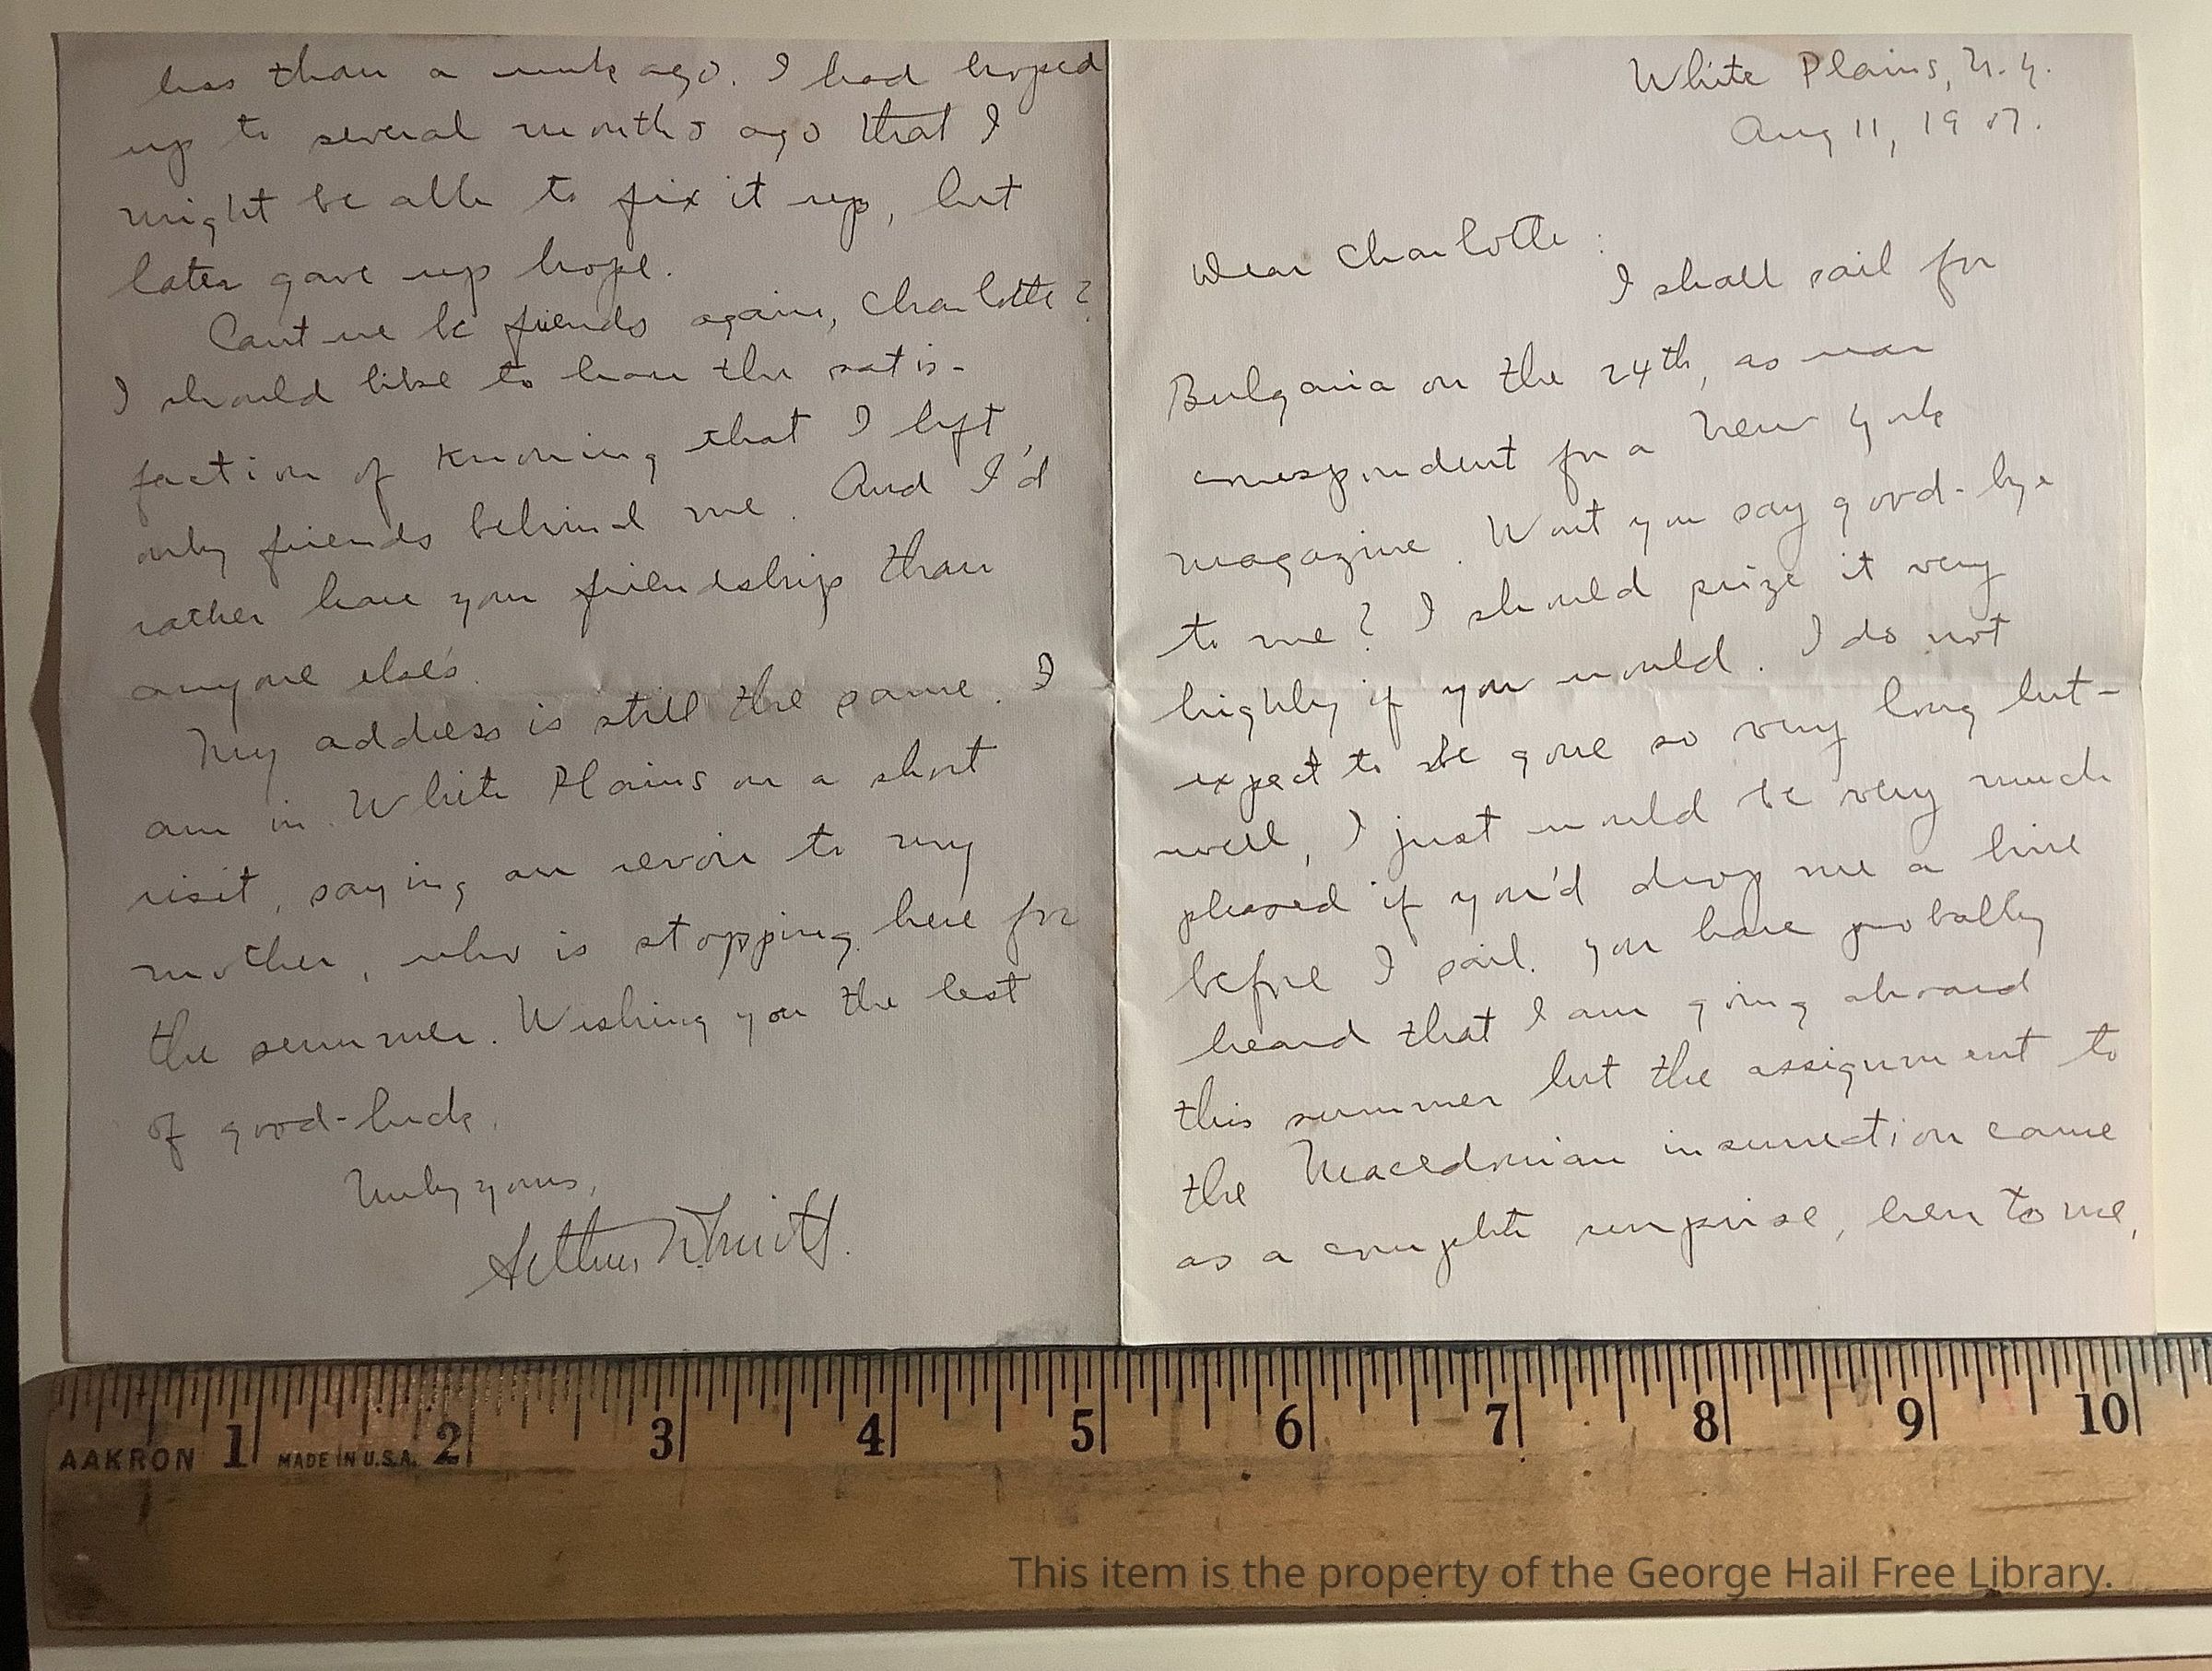 White Plains, N.Y.
Aug 11, 1907.
Dear Charlotte:
I shall sail for
Bulgaria on the 24th, as war
correspondent for a New York
magazine. Wont you say good-bye
to me? I should prize it very
highly if you would. I do not
expect to be gone so very long but-
well, I just would be very much
pleased if you'd drop me a line
before I sail. You have probably
heard that I am going abroad
this summer but the assignment to
the Macedonian insurrection came
as a complete surprise, even to me,
less than a week ago. I had hoped
up to several months ago that I
might be able to fix it up, but
later gave up hope.
Cant we be friends again, Charlotte?
I should like to have the satis-
faction of knowing that I left
only friends behind me. And I'd
rather have your friendship than
anyone else's.
My address is still the same. I
am in White Plains on a short
visit, saying au revoir to my
mother, who is stopping here for
the summer. Wishing you the best
of good-luck,
Truly yours,
Arthur
AAKRON 1 MADE IN U.S.A. 2 3 4 5 6 7 8 9 10
This item is the property of the George Hail Free Library.